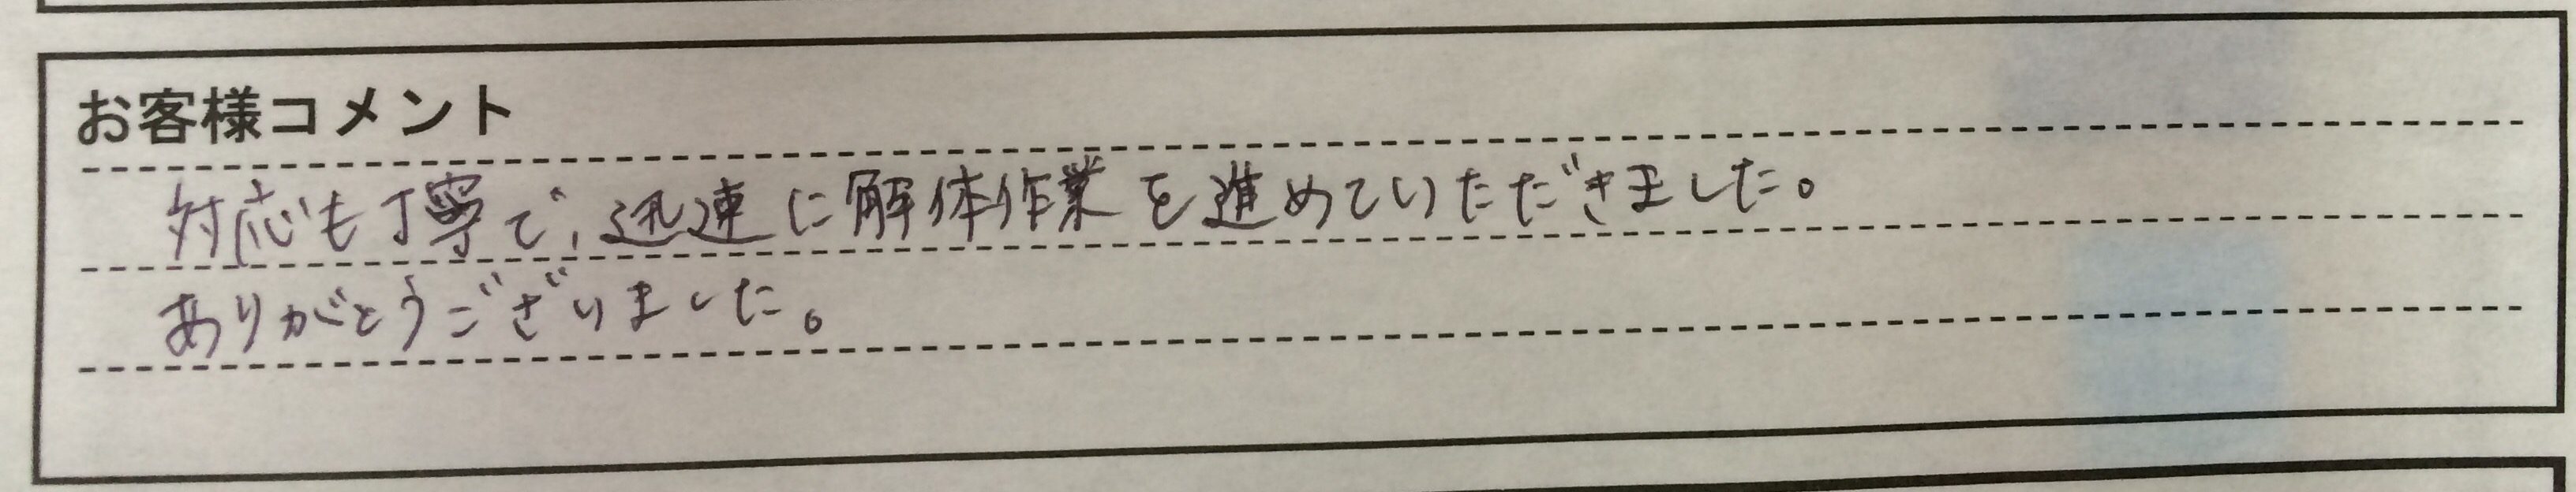 お客様コメント
対応も丁寧で、迅速に解体作業を進めていただきました。
ありがとうございました。